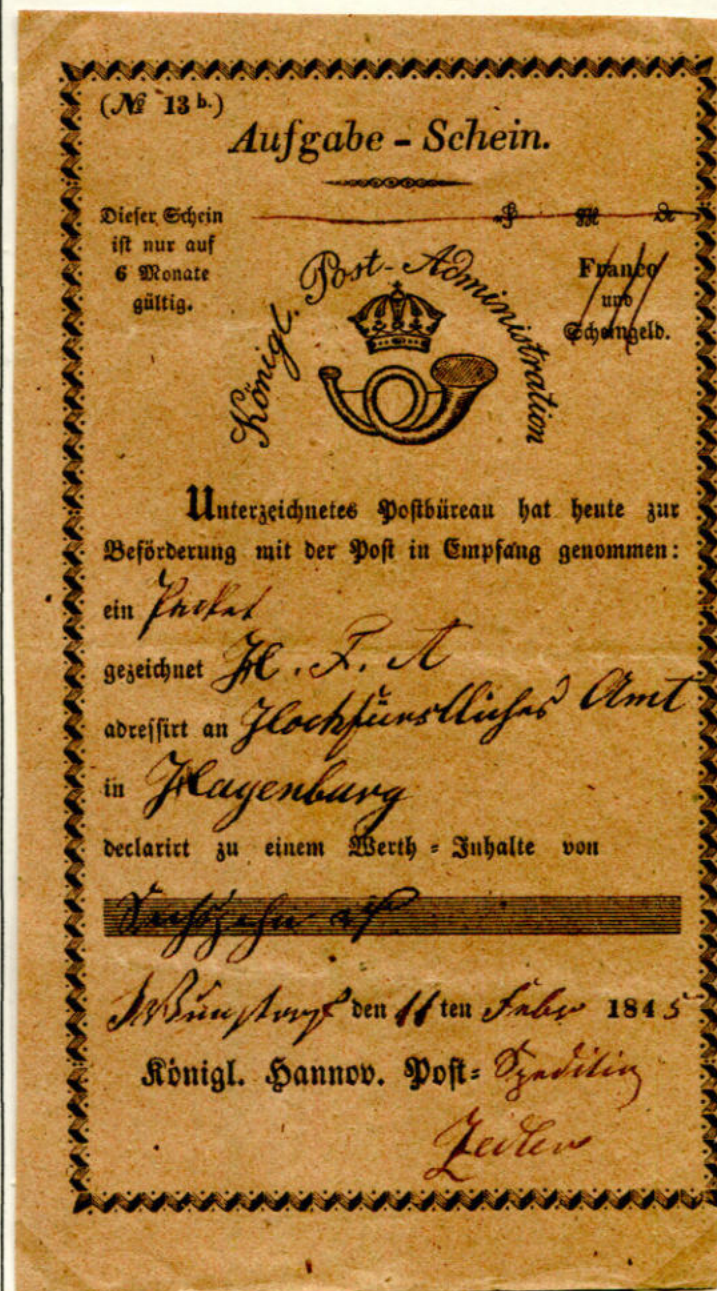 (№ 13 b.)
Aufgabe - Schein.
Dieser Schein
ist nur auf
6 Monate
gültig.
Franco
und
Scheingeld.
Königl. Post-Administration
Unterzeichnetes Postbüreau hat heute zur
Beförderung mit der Post in Empfang genommen:
ein Packet
gezeichnet H. F. A
adressirt an Hochfürstliches Amt
in Hagenburg
declarirt zu einem Werth = Inhalte von
Sechszehn
Wunstorf den 11 ten Febr 1845
Königl. Hannov. Post= Spedition
Zedler